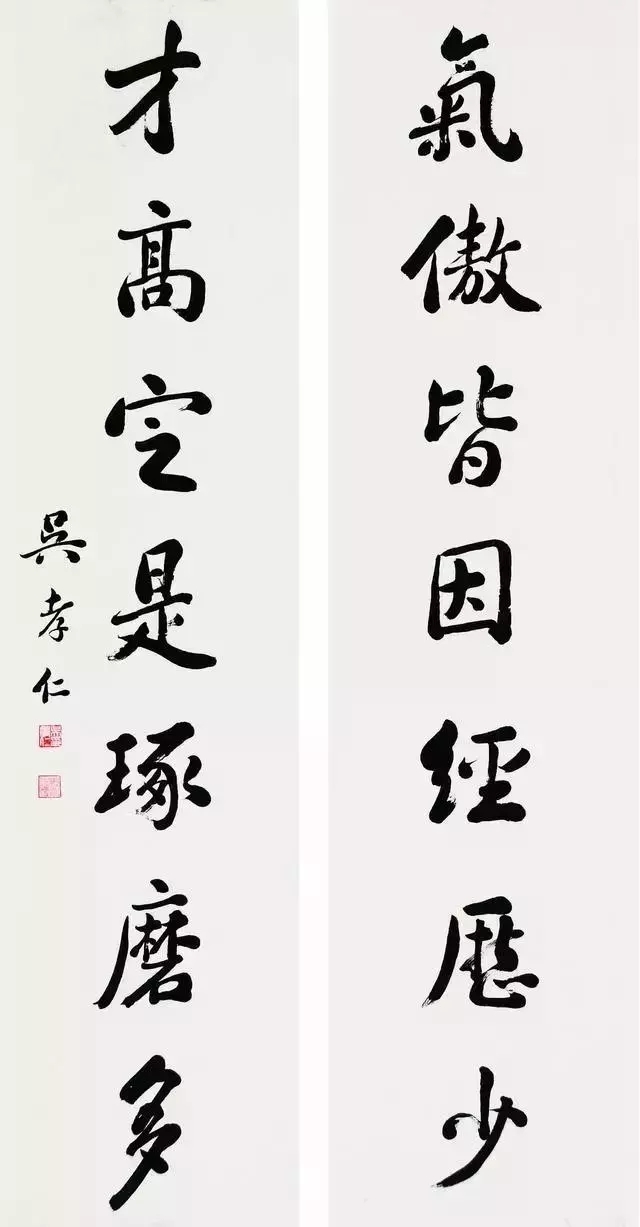 氣傲皆因經歷少
才高定是琢磨多
吳孝仁